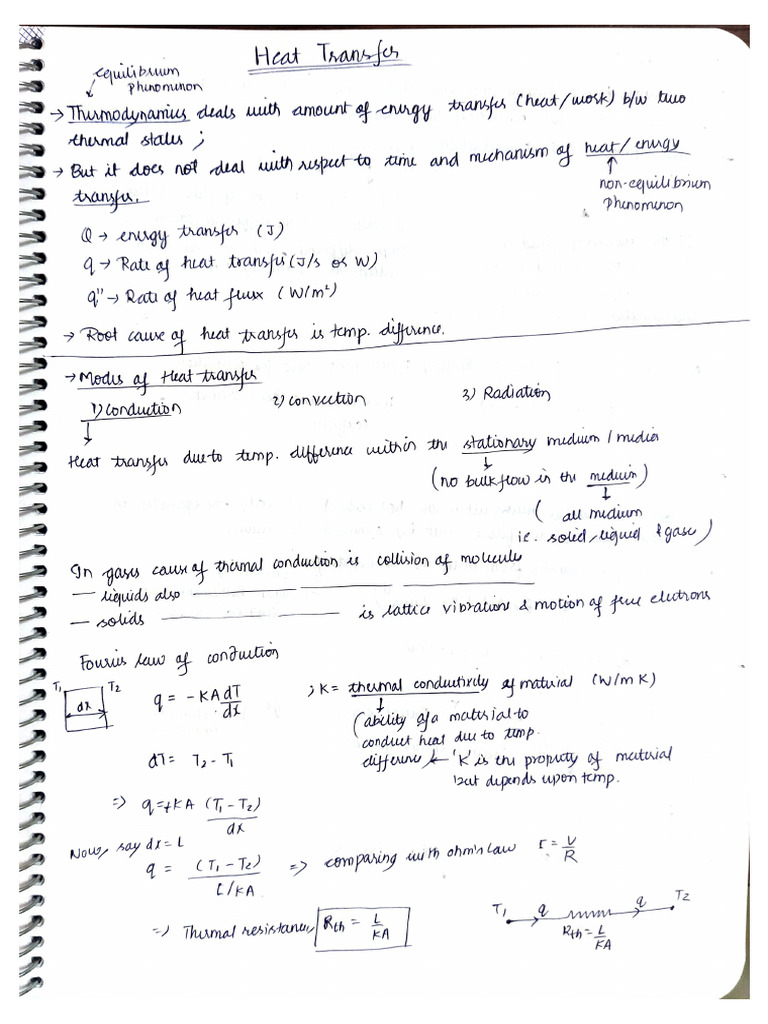 Heat Transfer
equilibrium
phenominon
→ Thermodynamics deals with amount of energy transfer (heat/work) b/w two
thermal states;
→ But it does not deal with respect to time and mechanism of heat/energy
transfer.
non-equilibrium
phenominon
Q → energy transfer (J)
q → Rate of heat transfer (J/s or W)
q" → Rate of heat flux (W/m²)
→ Root cause of heat transfer is temp. difference.
→ Modes of Heat transfer
1) Conduction 2) convection 3) Radiation
Heat transfer due to temp. difference within the stationary medium / media
(no bulk flow in the medium)
( all medium
i.e. solid, liquid & gase)
In gases cause of thermal conduction is collision of molecule
— liquids also —
— solids — is lattice vibrations & motion of free electrons
Fouries law of conduction
T1 dx T2
q = -KA dT/dx ; K = thermal conductivity of material (W/m K)
(ability of a material to
conduct heat due to temp.
dT = T2 - T1 difference ← 'K' is the property of material
but depends upon temp.
⇒ q = +KA (T1 - T2)/dx
Now, say dx = L
q = (T1 - T2)/(L/KA) ⇒ comparing with ohm's law I = V/R
⇒ Thermal resistance, Rth = L/KA
T1 q q T2
Rth = L/KA